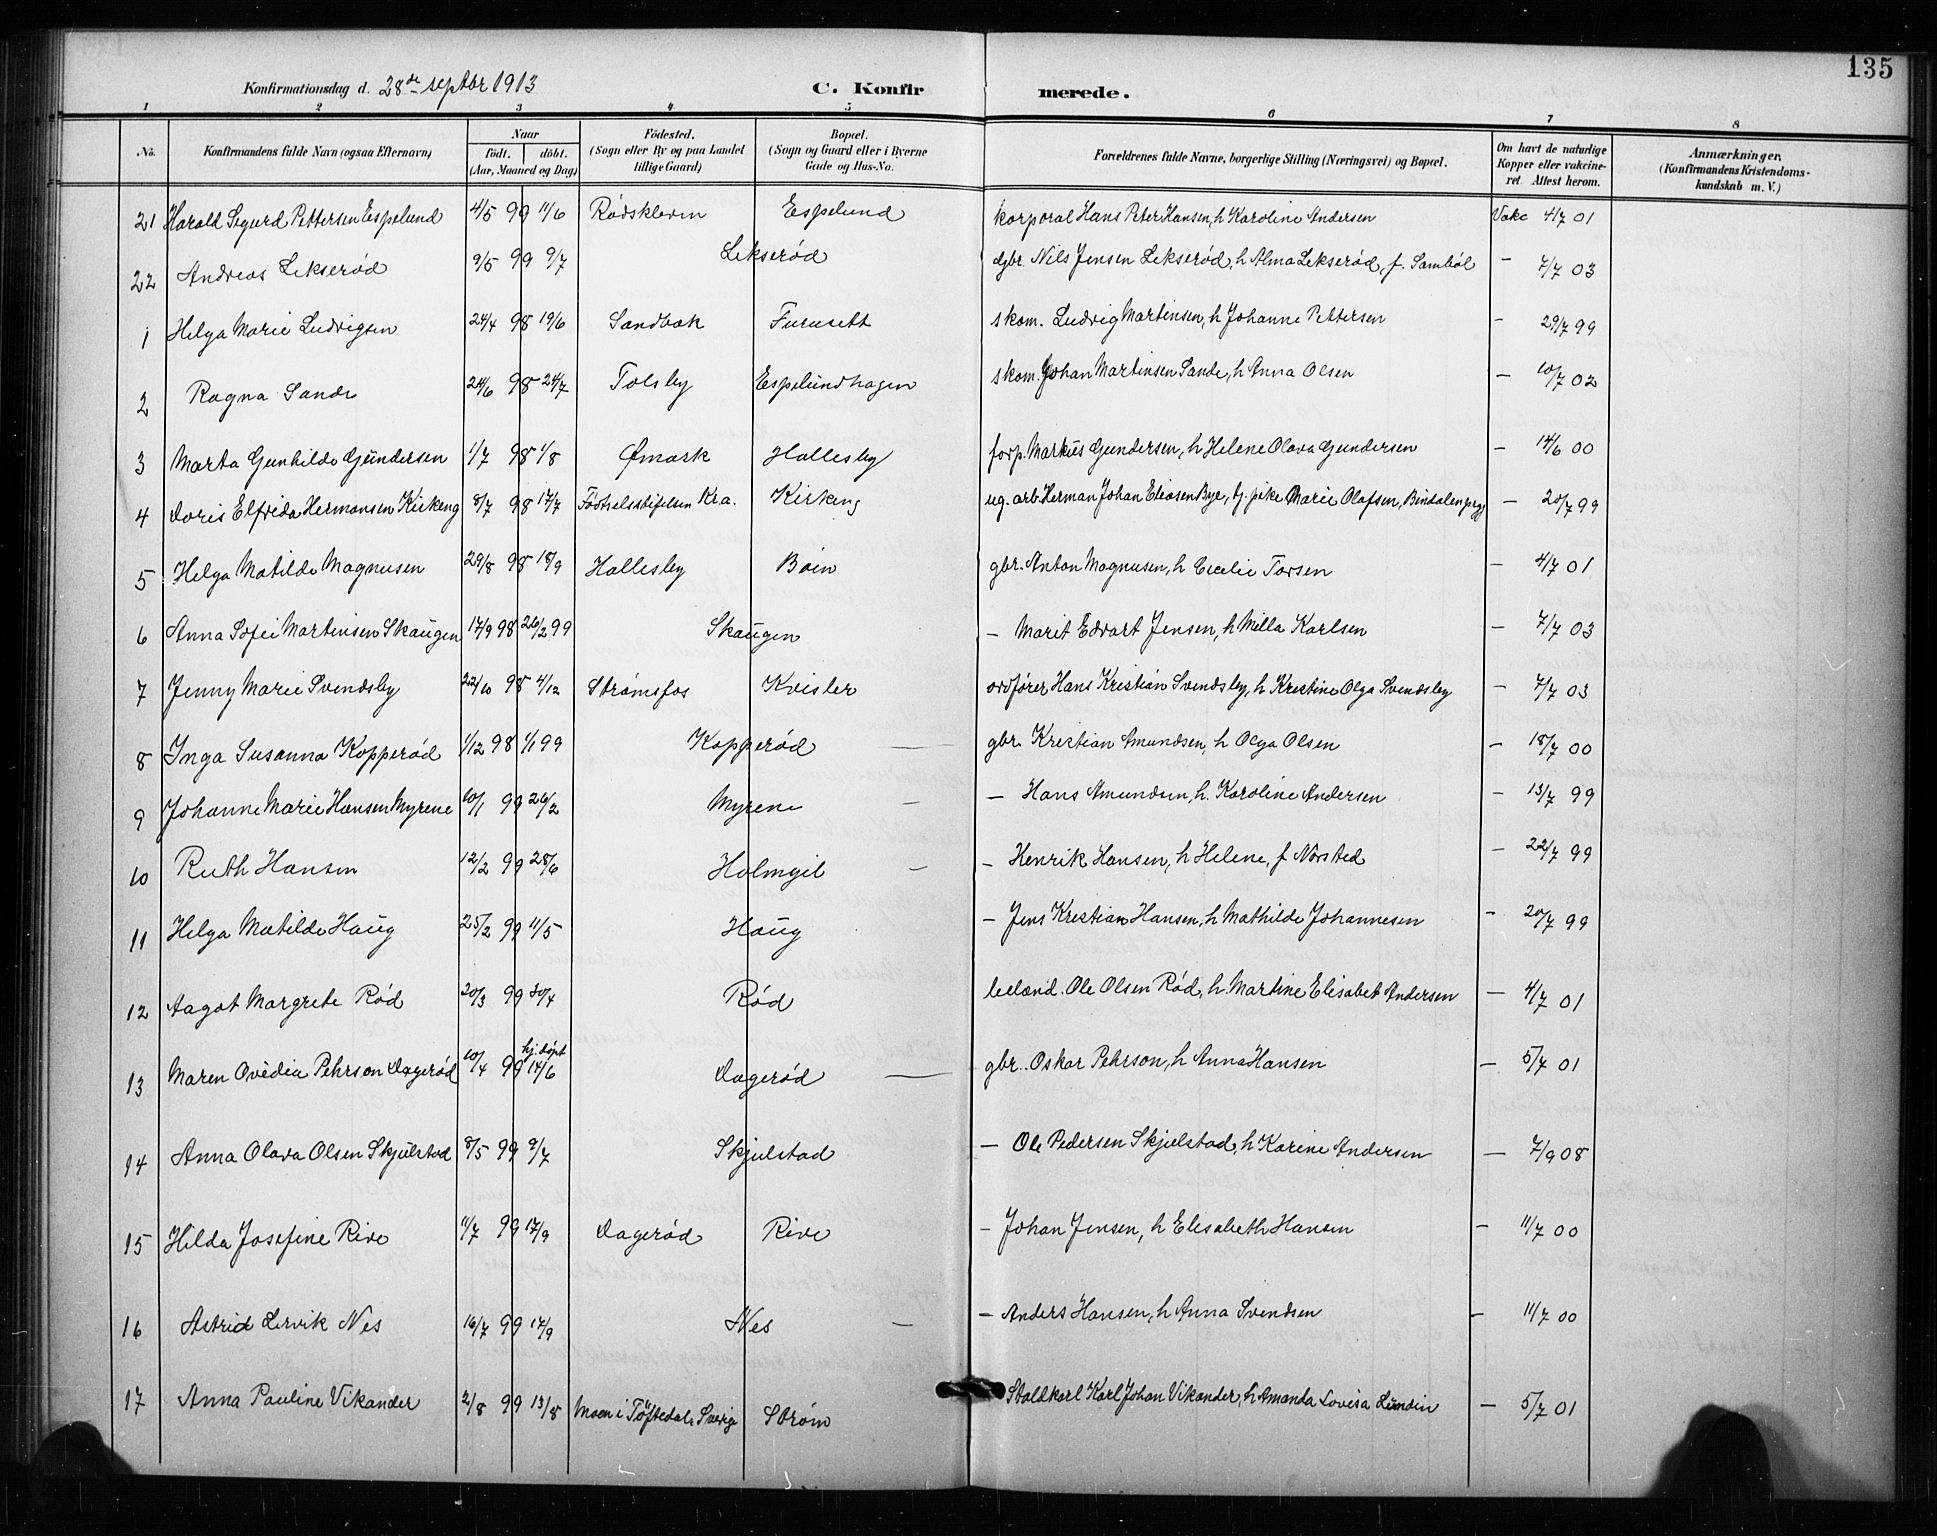 135
Konfirmationsdag d. 28de septbr 1913 C. Konfirmerede.
1 2 3 4 5 6 7 8
No. Konfirmandens fulde Navn (ogsaa Efternavn) Naar födt. döbt. (Aar, Maaned og Dag) Födested. (Sogn eller By og paa Landet tillige Gaard) Bopæl. (Sogn og Gaard eller i Byerne Gade og Hus-No. Forældrenes fulde Navne, borgerlige Stilling (Næringsvei) og Bopæl. Om havt de naturlige Kopper eller vakcineret. Attest herom. Anmærkninger. (Konfirmandens Kristendomskundskab m. V.)
21 Harald Sigurd Pettersen Espelund 4/5 99 11/6 Rødskleven Espelund korporal Hans Peter Hansen, h Karoline Andersen Vakc 4/7 01
22 Andreas Lekserød 9/5 99 9/7 Lekserød dgbr. Nils Jensen Lekserød, h Alma Lekserød, f. Sambøl – 7/7 03
1 Helga Marie Ludvigsen 24/4 98 19/6 Sandbæk Furusett skom. Ludvig Martinsen, h Johanne Pettersen – 29/7 99
2 Ragna Sande 24/6 98 24/7 Tolsby Espelundhagen skom. Johan Martinsen Sande, h Anna Olsen – 10/7 02
3 Marta Gunhilde Gundersen 1/7 98 1/8 Ømark Hallesby forp. Markus Gundersen, h Helene Olava Gundersen – 14/6 00
4 Doris Elfrida Hermansen Kirkeng 8/7 98 17/7 Fødselsstiftelsen Kra. Kirkeng ug. arb. Herman Johan Eliasen Bye, tj. pike Marie Olafsen, Bindalen – 20/7 99
5 Helga Matilde Magnusen 29/8 98 18/9 Hallesby Bøen gbr. Anton Magnusen, h Cecilie Torsen – 4/7 01
6 Anna Sofie Martinsen Skaugen 17/9 98 26/2 99 Skaugen – Marit Edvart Jensen, h Milla Karlsen – 7/7 03
7 Jenny Marie Svendsby 22/10 98 4/12 Strømsfos Kvisler ordfører Hans Kristian Svendsby, h Kristine Olga Svendsby – 7/7 03
8 Inga Susanna Kopperød 1/12 98 1/1 99 Kopperød — gbr. Kristian Amundsen, h Olga Olsen – 18/7 00
9 Johanne Marie Hansen Myrene 10/1 99 26/2 Myrene – – Hans Amundsen, h. Karoline Andersen – 13/7 99
10 Ruth Hansen 12/2 99 28/6 Holmgil – – Henrik Hansen, h Helene, f Norsted – 22/7 99
11 Helga Matilde Haug 25/2 99 11/5 Haug – Jens Kristian Hansen, h Mathilde Johannesen – 20/7 99
12 Aagot Margrete Rød 20/3 99 30/4 Rød leilænd. Ole Olsen Rød, h. Martine Elisabet Andersen – 4/7 01
13 Maren Ovedia Pehrson Dagerød 10/4 99 hj. døpt 14/6 Dagerød — gbr. Oskar Pehrson, h Anna Hansen – 5/7 01
14 Anna Olava Olsen Skjulstad 8/5 99 9/7 Skjulstad – Ole Pedersen Skjulstad, h Karine Andersen – 7/9 08
15 Hilda Josefine Rive 11/7 99 17/9 Dagerød Rive – Johan Jensen, h Elisabeth Hansen – 11/7 00
16 Astrid Lervik Nes 16/7 99 17/9 Nes – – Anders Hansen, h Anna Svendsen – 11/7 00
17 Anna Pauline Vikander 2/8 99 13/8 Moen i Töftedal, Sverige Strøm Staldkarl Karl Johan Vikander, h Amanda Lovisa Lundin – 5/7 01